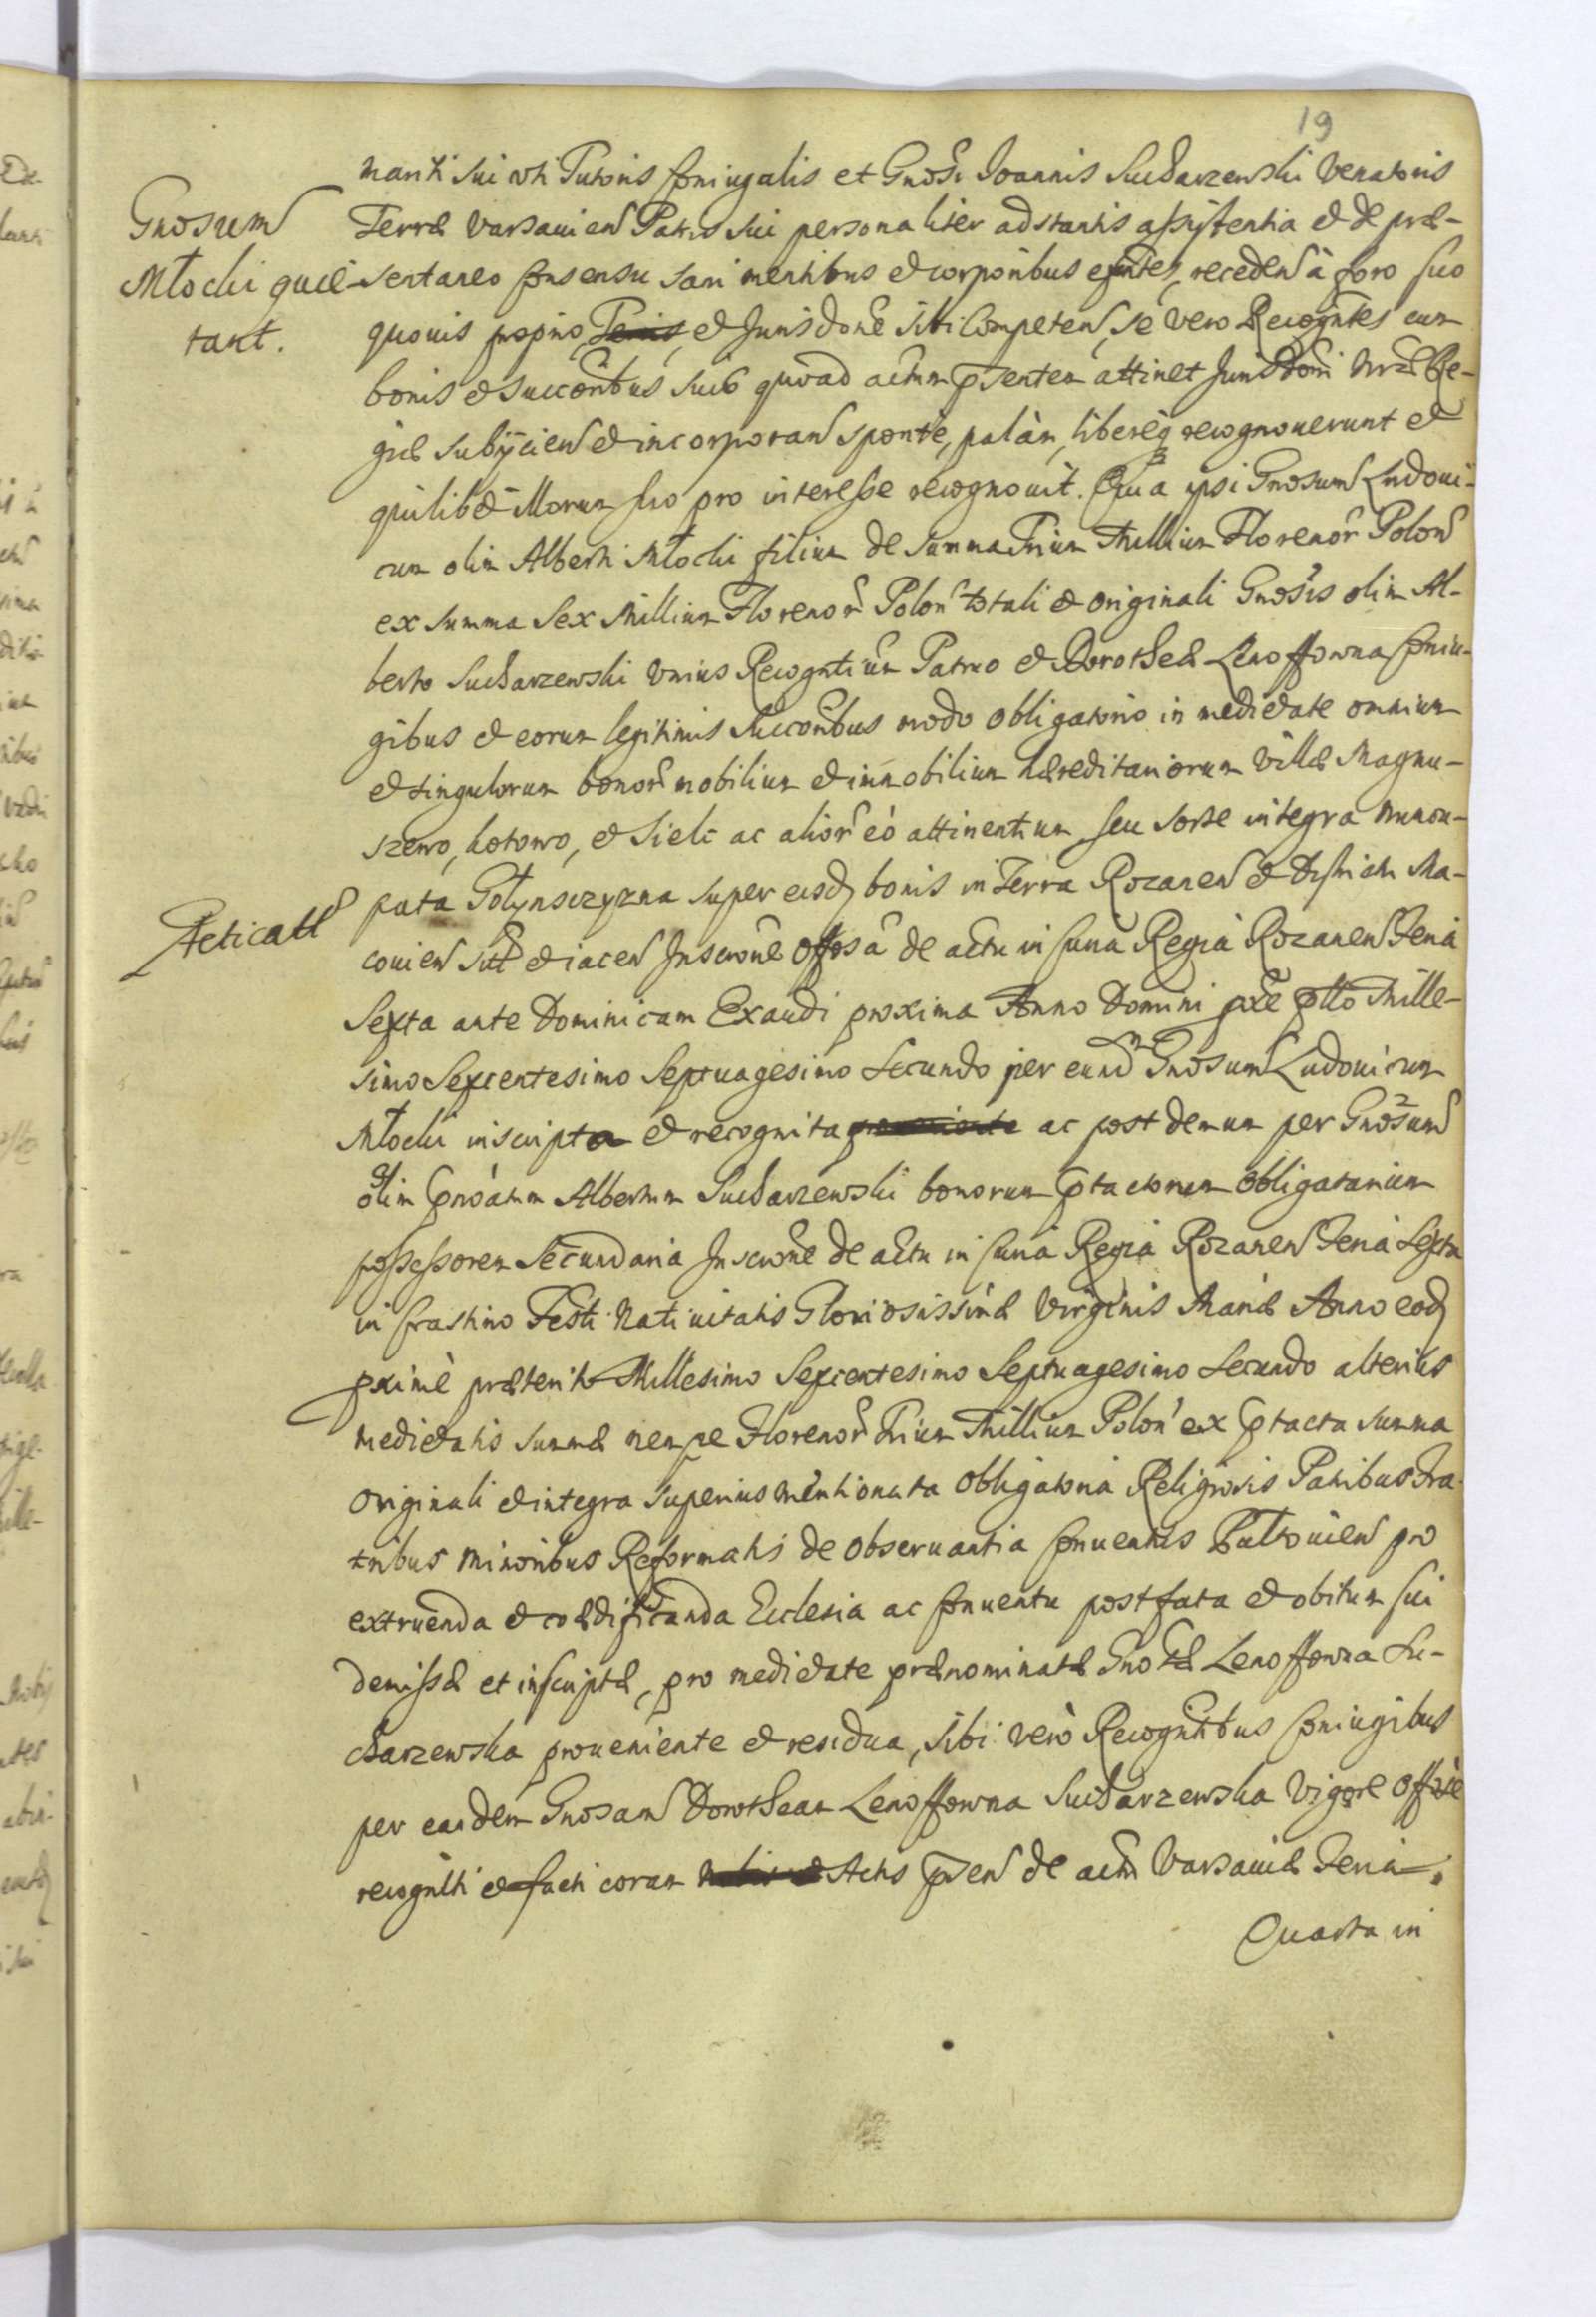 19
mariti sui uti Tutoris Coniugalis et Gnosi Ioannis Sucharzewski Venatoris
Gnosum
Terræ Varsauien Patris sui personaliter adstantis assistentia et de præ-
Młocki quie-
sentaneo Consensu sani mentibus et corporibus exntes, receden à foro suo
tant.
quouis proprio, et Jurisdone sibi Competen, se vero Recogntes cum
bonis et Succoribus suis quoad actum psentem attinet Jurisdoni Re-
giæ Subijcien et incorporan sponte, palàm, libereq recognouerunt et
quilibet illorum suo pro interesse recognouit. Quia ipsi Gnosum Ludoui-
cum olim Alberti Młocki filium de Summa Trium Millium Florenor Polon
ex summa Sex Millium Florenor Polon totali et originali Gnosis olim Al-
berto Sucharzewski vnius Recogntium Patruo et Dorotheæ Lenoffowna Coniu-
gibus et eorum legitimis Succoribus modo obligatorio in medietate omnium
et singulorum bonor mobilium et immobilium hæreditariorum Villæ Magnu-
szewo, kotowo, et Sielc ac alior eò attinentium seu sorte integra nuncu-
pata Gołynsczyzna super eisd bonis in Terra Rozanen et Districtu Ma-
Reticatt
couien sitt et iacen Inscrone de actu in Curia Regia Rozanen Feria
Sexta ante Dominicam Exaudi proxima Anno Domini Mille-
simo Sexcentesimo Septuagesimo Secundo per eund Gnosum Ludouicum
Młocki inscripta et recognita ac post demum per Gnosum
olim Albertum Sucharzewski bonorum ptactorum obligatarium
possessorem Secundaria Inscrone de actu in Curia Regia Rozanen Feria Sexta
in Crastino Festi Natiuitatis Gloriosissimæ Virginis Mariæ Anno eod
pximè præterito Millesimo Sexcentesimo Septuagesimo Secundo alterius
medietatis summæ nempe Florenor Trium Millium Polon ex ptacta summa
originali et integra superius mentionata obligatoria Religiosis Patribus Fra-
tribus Minoribus Reformatis de obseruantia Conuentus Pultouien pro
extruenda et coædificanda Ecclesia ac Conuentu post fata et obitum sui
demissæ et inscriptæ, pro medietate prænominatæ Lenoffowna Su-
charzewska proueniente et residua, sibi verò Recogntibus Coniugibus
per eandem Gnosam Dorotheam Lenoffowna Sucharzewska vigore
recogniti et facti coram Actis psen de actu Varsauiæ Feria
Quarta in